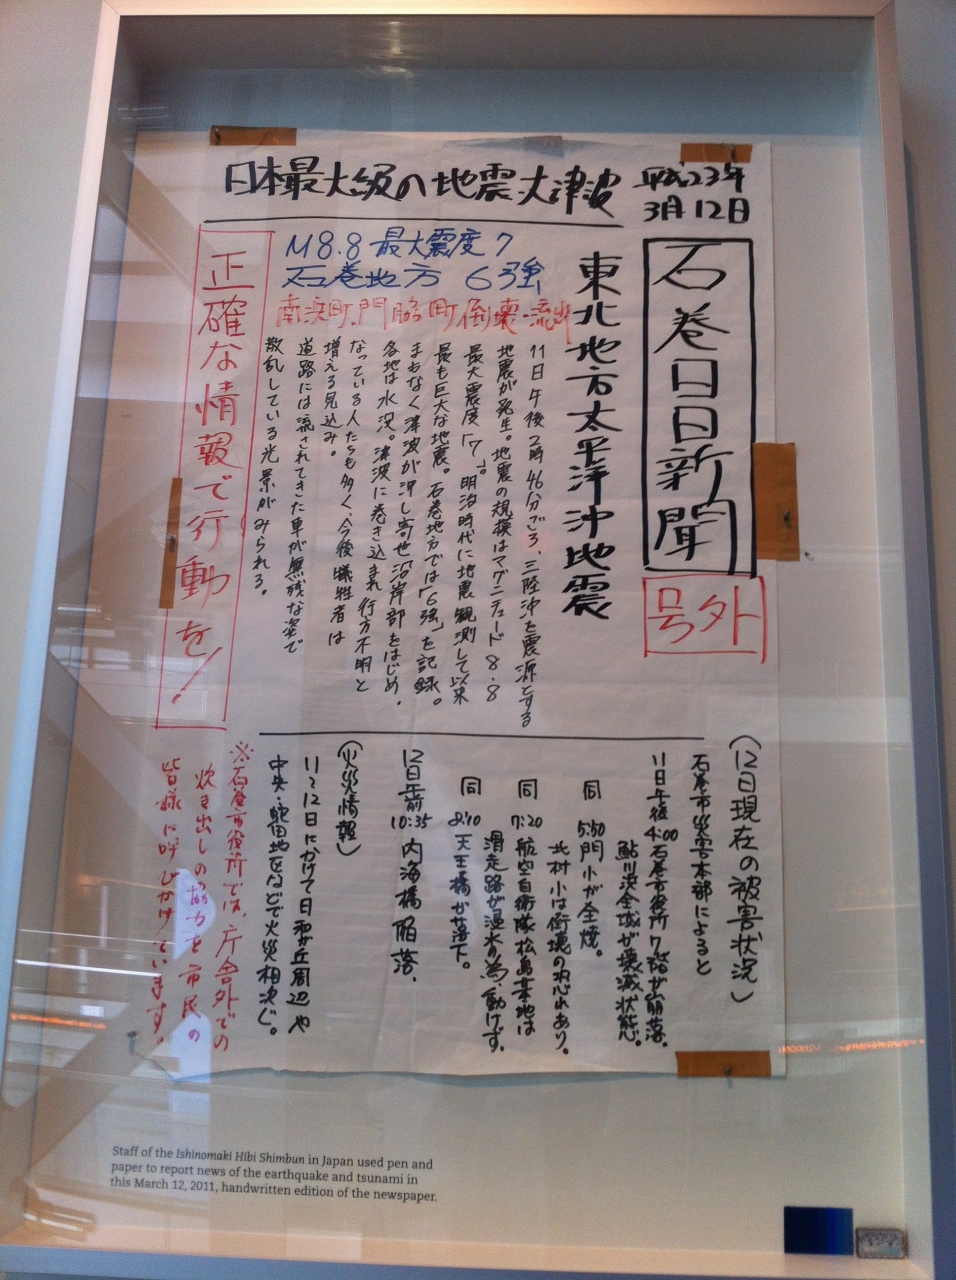 日本最大級の地震・大津波
平成23年
3月12日
石巻日日新聞
号外
東北地方太平洋沖地震
M8.8 最大震度7
石巻地方 6強
南浜町・門脇町倒壊・流出
11日午後2時46分ごろ、三陸沖を震源とする
地震が発生。地震の規模はマグニチュード8・8
最大震度「7」。明治時代に地震観測して以来
最も巨大な地震。石巻地方では「6強」を記録。
まもなく津波が押し寄せ沿岸部をはじめ、
各地は水没。津波に巻き込まれ行方不明と
なっている人たちも多く、今後犠牲者は
増える見込み。
道路には流されてきた車が無残な姿で
散乱している光景がみられる。
正確な情報で行動を!
(12日現在の被害状況)
石巻市災害本部によると
11日午後4:00 石巻市役所7階が崩落。
鮎川浜全域が壊滅状態。
同 5:50 門小が全焼。
北村小は倒壊の恐れあり。
同 7:20 航空自衛隊松島基地は
滑走路が浸水の為、動けず。
同 8:40 天王橋が落下。
12日午前10:35 内海橋陥落。
(火災情報)
11~12日にかけて日和が丘周辺や
中央・蛇田地区などで火災相次ぐ。
※石巻市役所では、庁舎外での
炊き出しの協力を市民の
皆様に呼びかけています。
Staff of the Ishinomaki Hibi Shimbun in Japan used pen and
paper to report news of the earthquake and tsunami in
this March 12, 2011, handwritten edition of the newspaper.